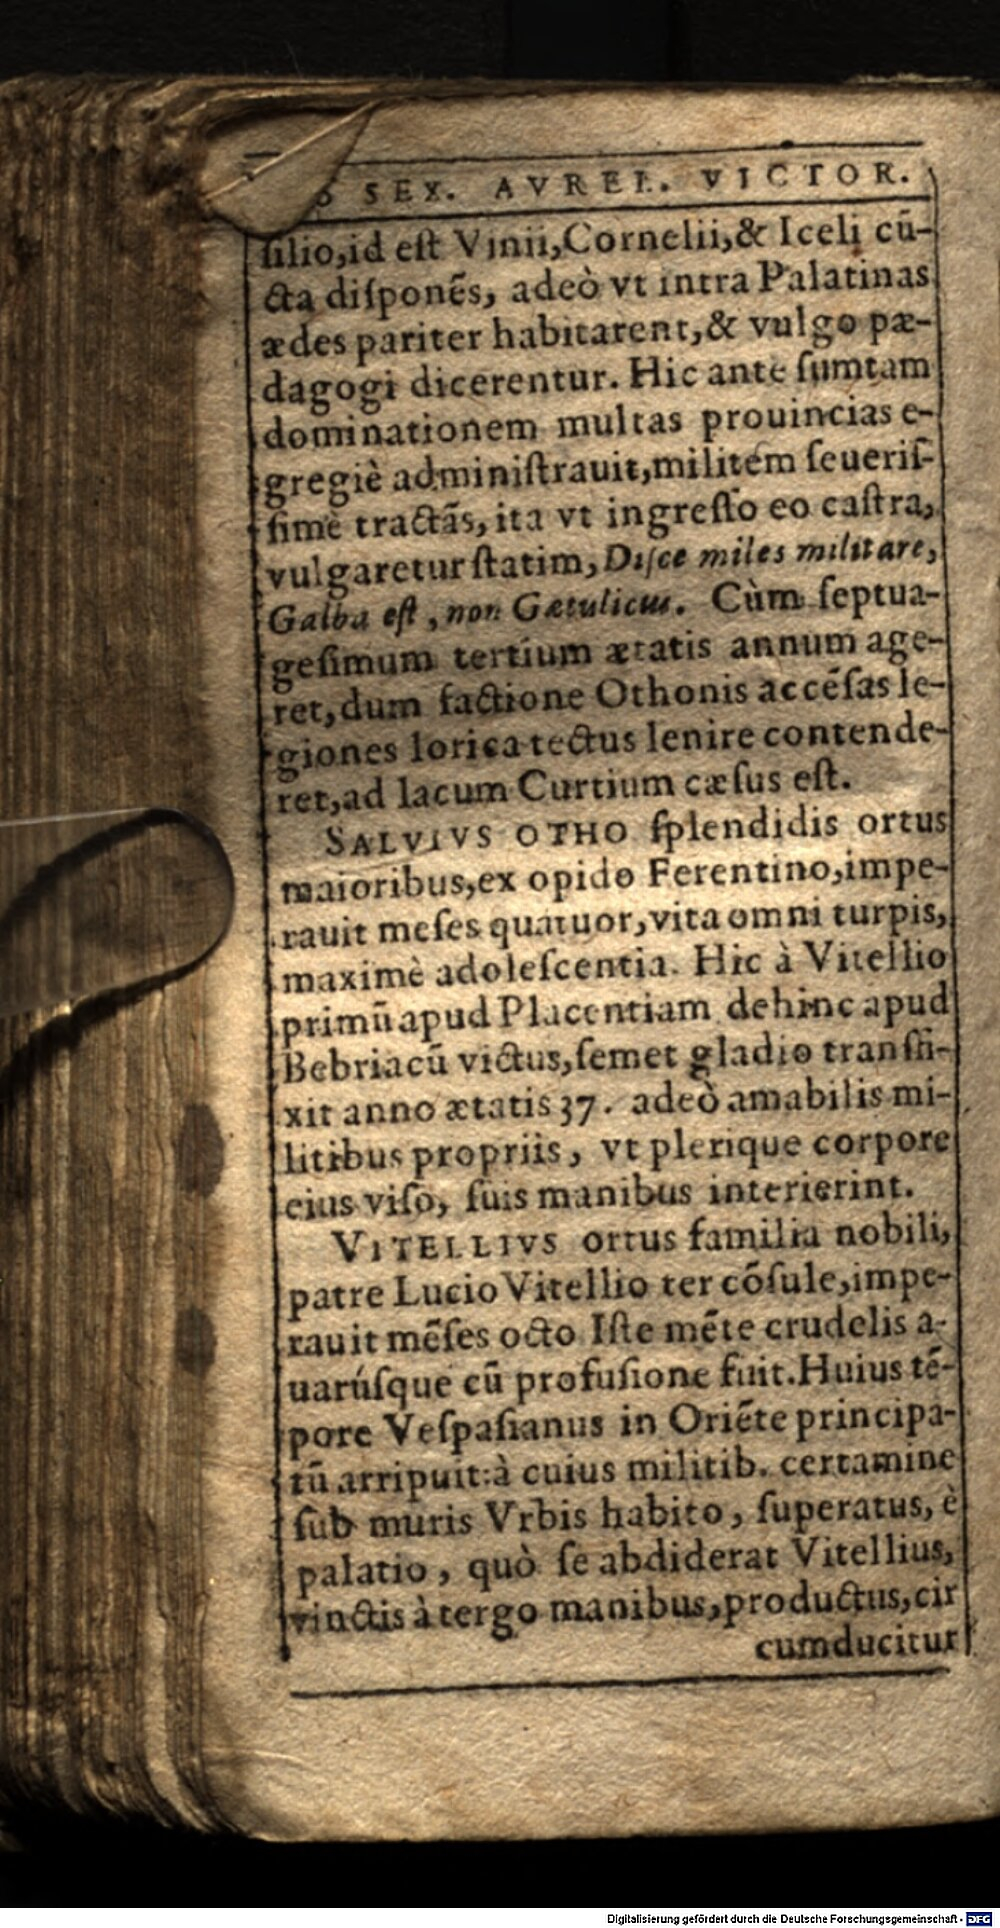 SEX. AVREL. VICTOR.
silio,id est Vinii,Cornelii,& Iceli cū-
cta disponēs, adeò vt intra Palatinas
ædes pariter habitarent,& vulgo pæ-
dagogi dicerentur. Hic ante sumtam
dominationem multas prouincias e-
gregiè administrauit,militem seueris-
simè tractās, ita vt ingresso eo castra,
vulgaretur statim, Disce miles militare,
Galba est, non Gætulicus. Cùm septua-
gesimum tertium ætatis annum age-
ret,dum factione Othonis accēsas le-
giones lorica tectus lenire contende-
ret,ad lacum Curtium cæsus est.
SALVIVS OTHO splendidis ortus
maioribus,ex opido Ferentino,impe-
rauit meses quatuor,vita omni turpis,
maximè adolescentia. Hic à Vitellio
primū apud Placentiam dehinc apud
Bebriacū victus,semet gladio transfi-
xit anno ætatis 37. adeò amabilis mi-
litibus propriis, vt plerique corpore
eius viso, suis manibus interierint.
VITELLIVS ortus familia nobili,
patre Lucio Vitellio ter cōsule,impe-
rauit mēses octo Iste mēte crudelis a-
uarúsque cū profusione fuit.Huius tē-
pore Vespasianus in Oriēte principa-
tū arripuit:à cuius militib. certamine
sub muris Vrbis habito, superatus, è
palatio, quò se abdiderat Vitellius,
vinctis à tergo manibus,productus,cir
cumducitur
Digitalisierung gefördert durch die Deutsche Forschungsgemeinschaft - DFG